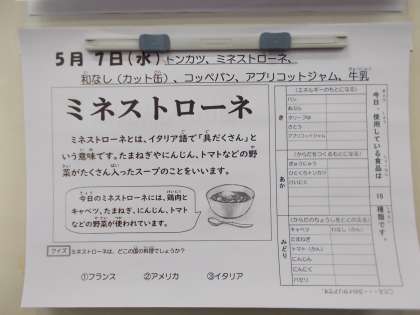 5月 7日(水) トンカツ、ミネストローネ、
和なし(カット缶)、コッペパン、アプリコットジャム、牛乳
ミネストローネ
ミネストローネとは、イタリア語で「具だくさん」と
いう意味です。たまねぎやにんじん、トマトなどの野
菜がたくさん入ったスープのことをいいます。
今日のミネストローネには、鶏肉と
キャベツ、たまねぎ、にんじん、トマト
などの野菜が使われています。
クイズ ミネストローネは、どこの国の料理でしょうか?
①フランス ②アメリカ ③イタリア
今日、使用している食品は
種類です。
き
(エネルギーのもとになる)
パン
あぶら
オリーブ油
さとう
アプリコットジャム
あか
(からだをつくるもとになる)
ぎゅうにゅう
ひとくちトンカツ
けいにく
みどり
(からだのちょうしをととのえる)
キャベツ わなし(かん)
たまねぎ
トマト(かん)
にんじん
にんにく
パセリ